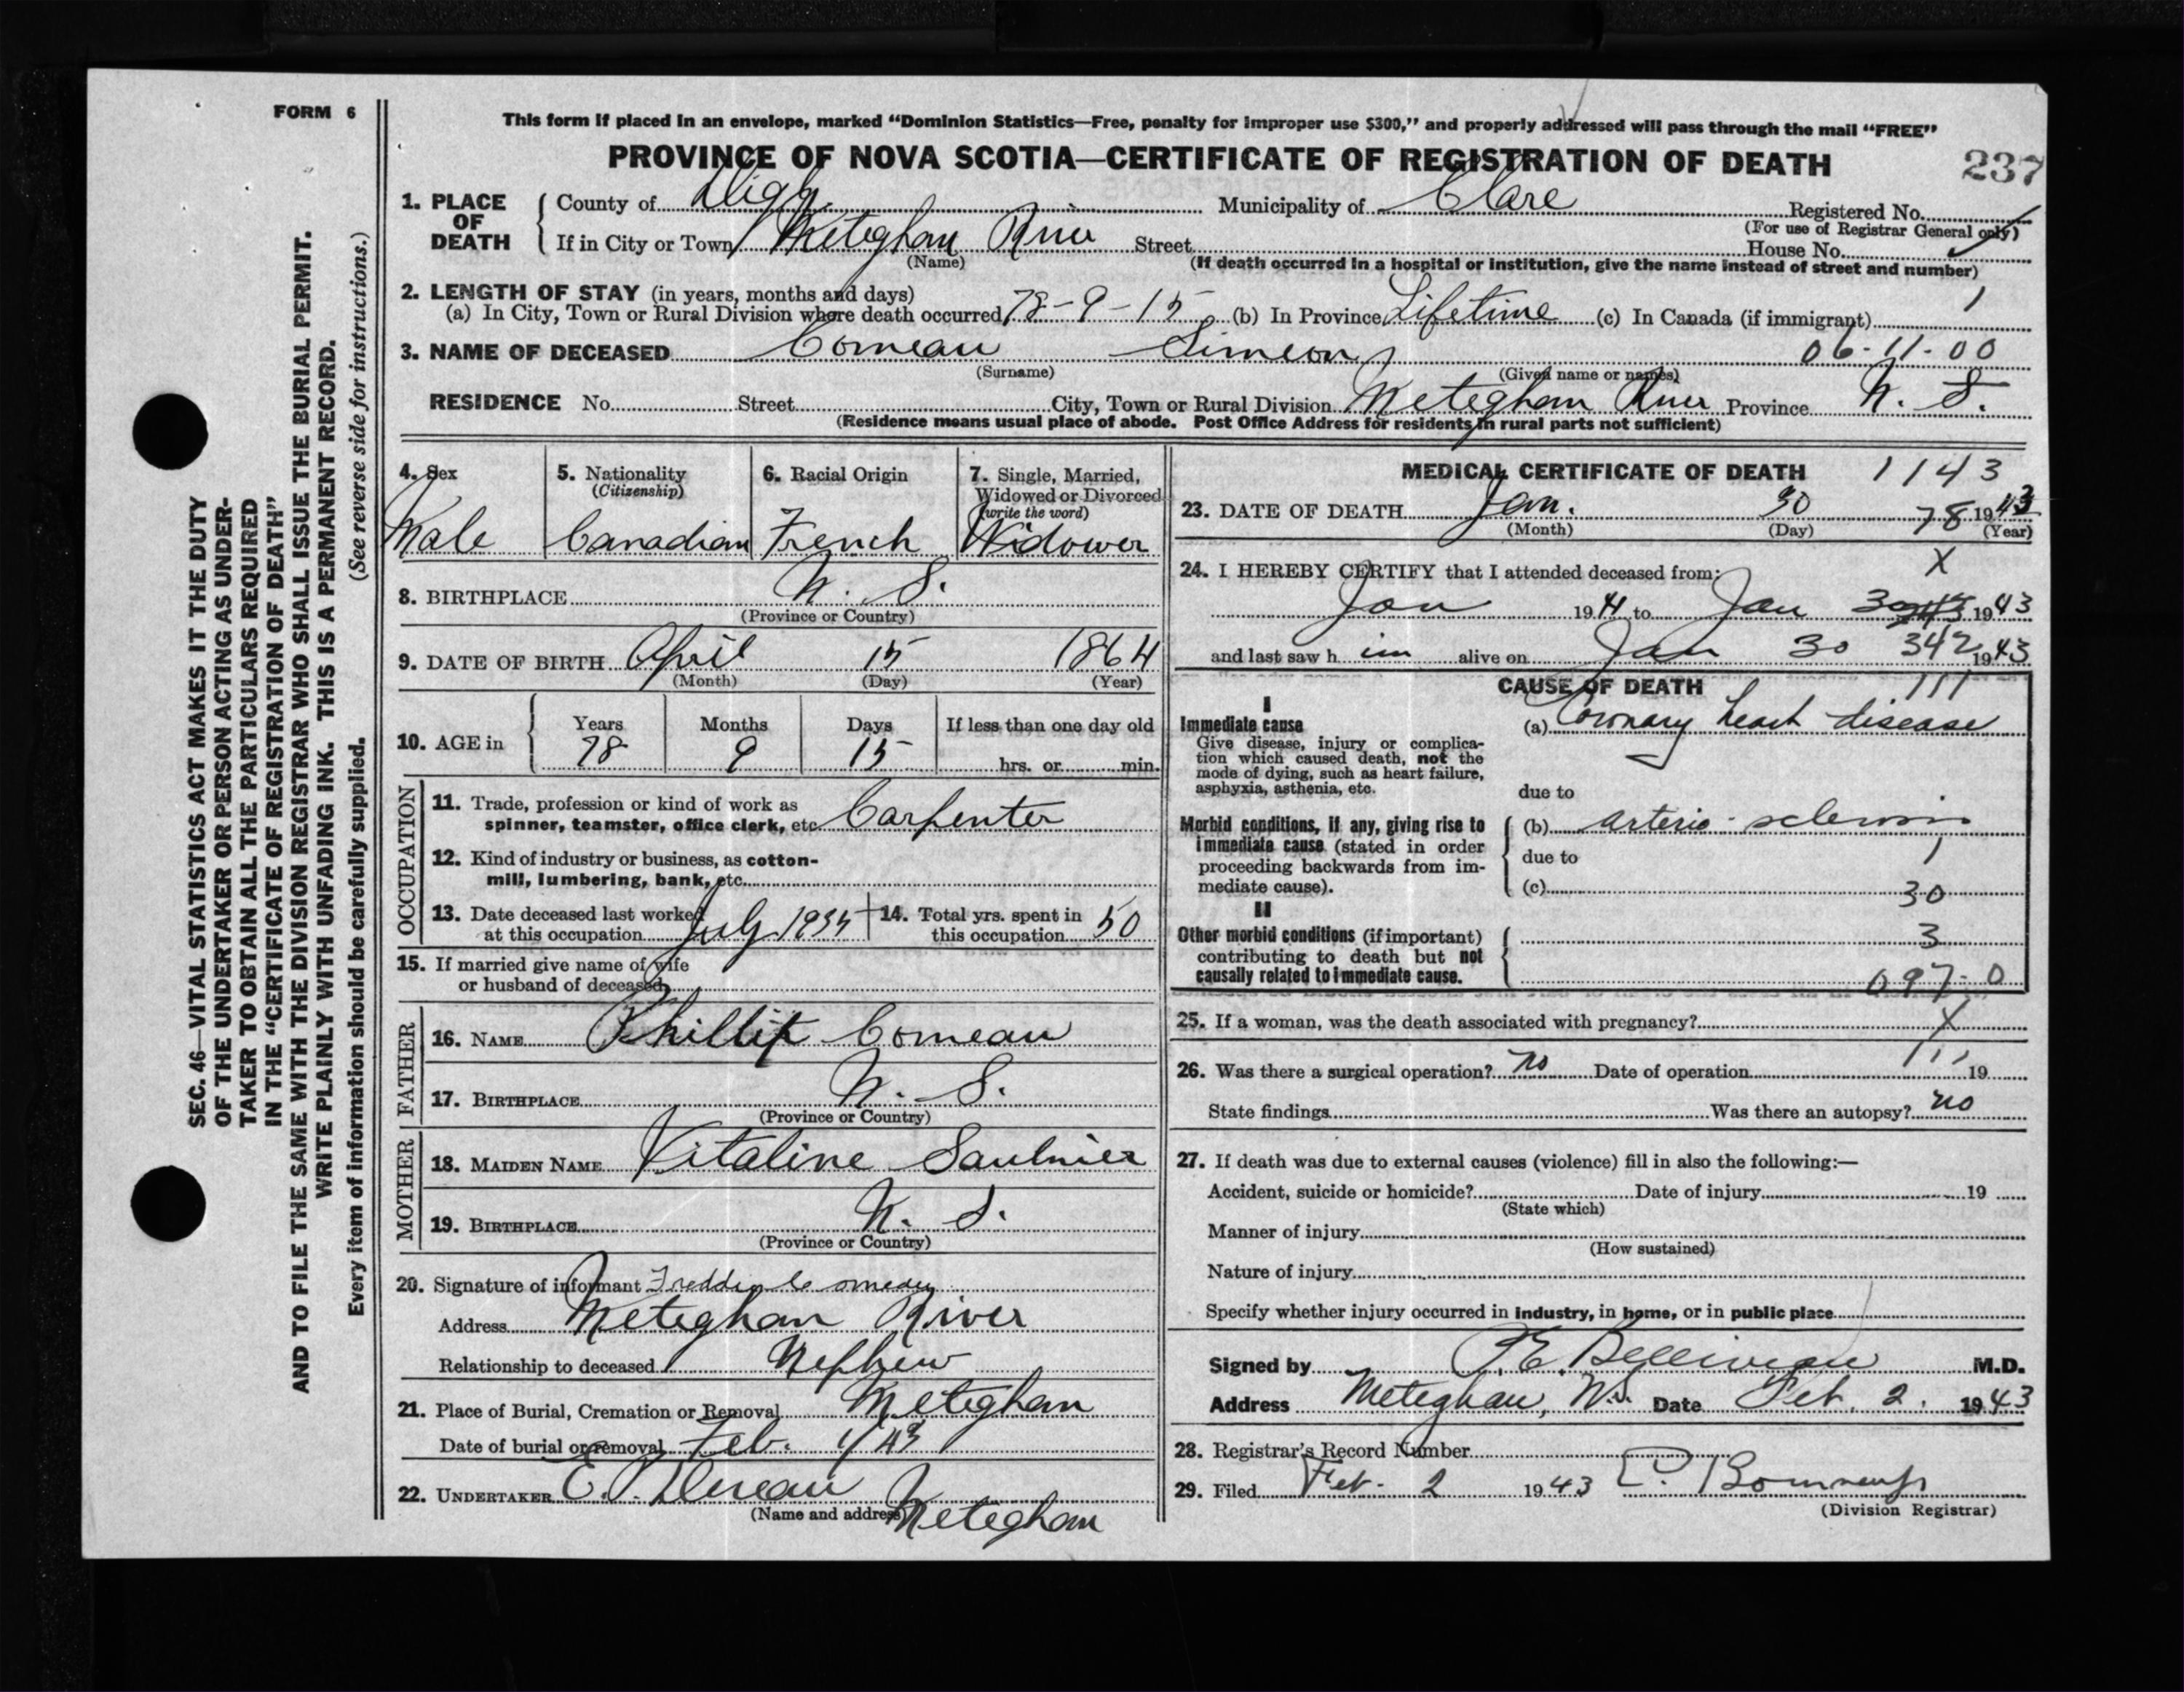 FORM 6
This form if placed in an envelope, marked “Dominion Statistics—Free, penalty for improper use $300,” and properly addressed will pass through the mail “FREE”
PROVINCE OF NOVA SCOTIA—CERTIFICATE OF REGISTRATION OF DEATH
237
1. PLACE OF DEATH
County of Digby Municipality of Clare Registered No.
(For use of Registrar General only)
If in City or Town Meteghan River Street House No.
(Name) (If death occurred in a hospital or institution, give the name instead of street and number)
2. LENGTH OF STAY (in years, months and days)
(a) In City, Town or Rural Division where death occurred 78-9-15 (b) In Province Lifetime (c) In Canada (if immigrant)
3. NAME OF DECEASED Comeau Simeon 06-11-00
(Surname) (Given name or names)
RESIDENCE No. Street City, Town or Rural Division Meteghan River Province N. S.
(Residence means usual place of abode. Post Office Address for residents in rural parts not sufficient)
4. Sex
Male
5. Nationality
(Citizenship)
Canadian
6. Racial Origin
French
7. Single, Married,
Widowed or Divorced
(write the word)
Widower
8. BIRTHPLACE N. S.
(Province or Country)
9. DATE OF BIRTH April 15 1864
(Month) (Day) (Year)
10. AGE in
Years Months Days If less than one day old
78 9 15 hrs. or min.
OCCUPATION
11. Trade, profession or kind of work as
spinner, teamster, office clerk, etc. Carpenter
12. Kind of industry or business, as cotton-
mill, lumbering, bank, etc.
13. Date deceased last worked
at this occupation July 1935
14. Total yrs. spent in
this occupation 50
15. If married give name of wife
or husband of deceased
FATHER
16. NAME Phillip Comeau
17. BIRTHPLACE N. S.
(Province or Country)
MOTHER
18. MAIDEN NAME Vitaline Saulnier
19. BIRTHPLACE N. S.
(Province or Country)
20. Signature of informant Freddie Comeau
Address Meteghan River
Relationship to deceased Nephew
21. Place of Burial, Cremation or Removal Meteghan
Date of burial or removal Feb. 1/43
22. UNDERTAKER
(Name and address) Meteghan
MEDICAL CERTIFICATE OF DEATH 1143
23. DATE OF DEATH Jan. 30 78 1943
(Month) (Day) (Year)
24. I HEREBY CERTIFY that I attended deceased from: X
Jan 1941 to Jan 30 1943
and last saw him alive on Jan 30 342 1943
CAUSE OF DEATH 111
I
Immediate cause
Give disease, injury or complica-
tion which caused death, not the
mode of dying, such as heart failure,
asphyxia, asthenia, etc.
(a) Coronary heart disease
due to
Morbid conditions, if any, giving rise to
immediate cause (stated in order
proceeding backwards from im-
mediate cause).
(b) arterio-sclerosis
due to 1
(c) 30
II
Other morbid conditions (if important)
contributing to death but not
causally related to immediate cause.
3
097-0
25. If a woman, was the death associated with pregnancy? X
26. Was there a surgical operation? no Date of operation 19
State findings Was there an autopsy? no
27. If death was due to external causes (violence) fill in also the following:—
Accident, suicide or homicide? Date of injury 19
(State which)
Manner of injury
(How sustained)
Nature of injury
Specify whether injury occurred in industry, in home, or in public place
Signed by P.E. Belliveau M.D.
Address Meteghan, N.S. Date Feb. 2. 1943
28. Registrar's Record Number
29. Filed Feb. 2 1943
(Division Registrar)
SEC. 46—VITAL STATISTICS ACT MAKES IT THE DUTY
OF THE UNDERTAKER OR PERSON ACTING AS UNDER-
TAKER TO OBTAIN ALL THE PARTICULARS REQUIRED
IN THE “CERTIFICATE OF REGISTRATION OF DEATH”
AND TO FILE THE SAME WITH THE DIVISION REGISTRAR WHO SHALL ISSUE THE BURIAL PERMIT.
WRITE PLAINLY WITH UNFADING INK. THIS IS A PERMANENT RECORD.
Every item of information should be carefully supplied. (See reverse side for instructions.)